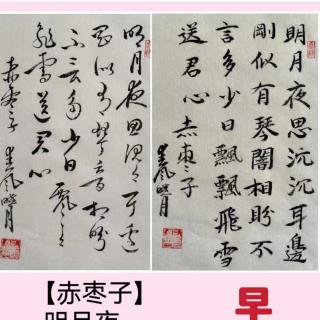 明月夜思沉沉耳邊
剛似有琴音相盼
不言多少日飄飄
飛雪送君心
赤枣子
明月夜思沉沉耳邊
剛似有琴闇相盼不
言多少日飄飄飛雪
送君心赤棗子
【赤枣子】
明月夜
早